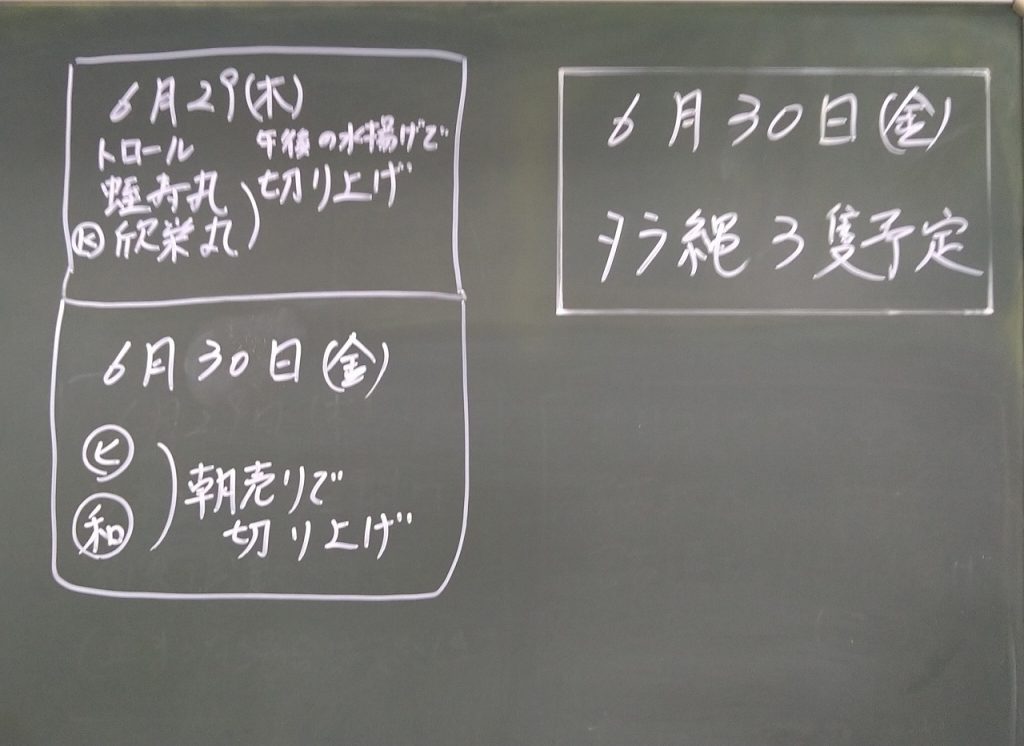 6月29(木)
トロール 午後の水揚げで
蛭寿丸 切り上げ
Ⓚ欣栄丸
6月30日(金)
㋪
和
朝売りで
切り上げ
6月30日(金)
タラ縄 3隻予定